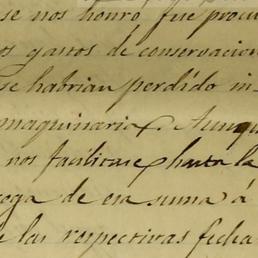 se nos honró fue procu
os gastos de conservacion
se habrian perdido in
maquinaria. Aunqu
nos facilitase hasta la
oga de esa suma á
e las respectivas fecha